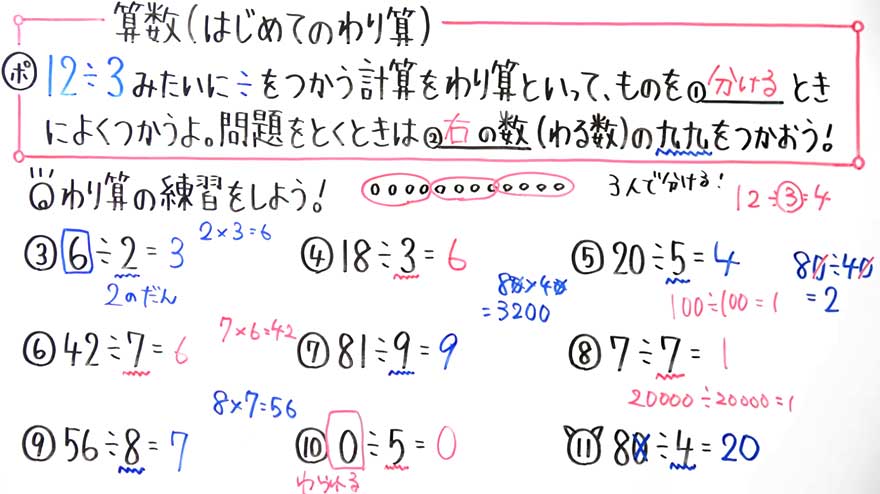 算数(はじめてのわり算)
ポ 12÷3みたいに÷をつかう計算をわり算といって、ものを①分けるとき
によくつかうよ。問題をとくときは②右の数(わる数)の九九をつかおう!
わり算の練習をしよう! 3人で分ける! 12÷3=4
③ 6÷2=3 2×3=6
2のだん
④ 18÷3=6
⑤ 20÷5=4
100÷100=1
80÷40
=2
80×40
=3200
⑥ 42÷7=6 7×6=42
⑦ 81÷9=9
⑧ 7÷7=1
20000÷20000=1
⑨ 56÷8=7 8×7=56
⑩ 0÷5=0
わられる
⑪ 80÷4=20